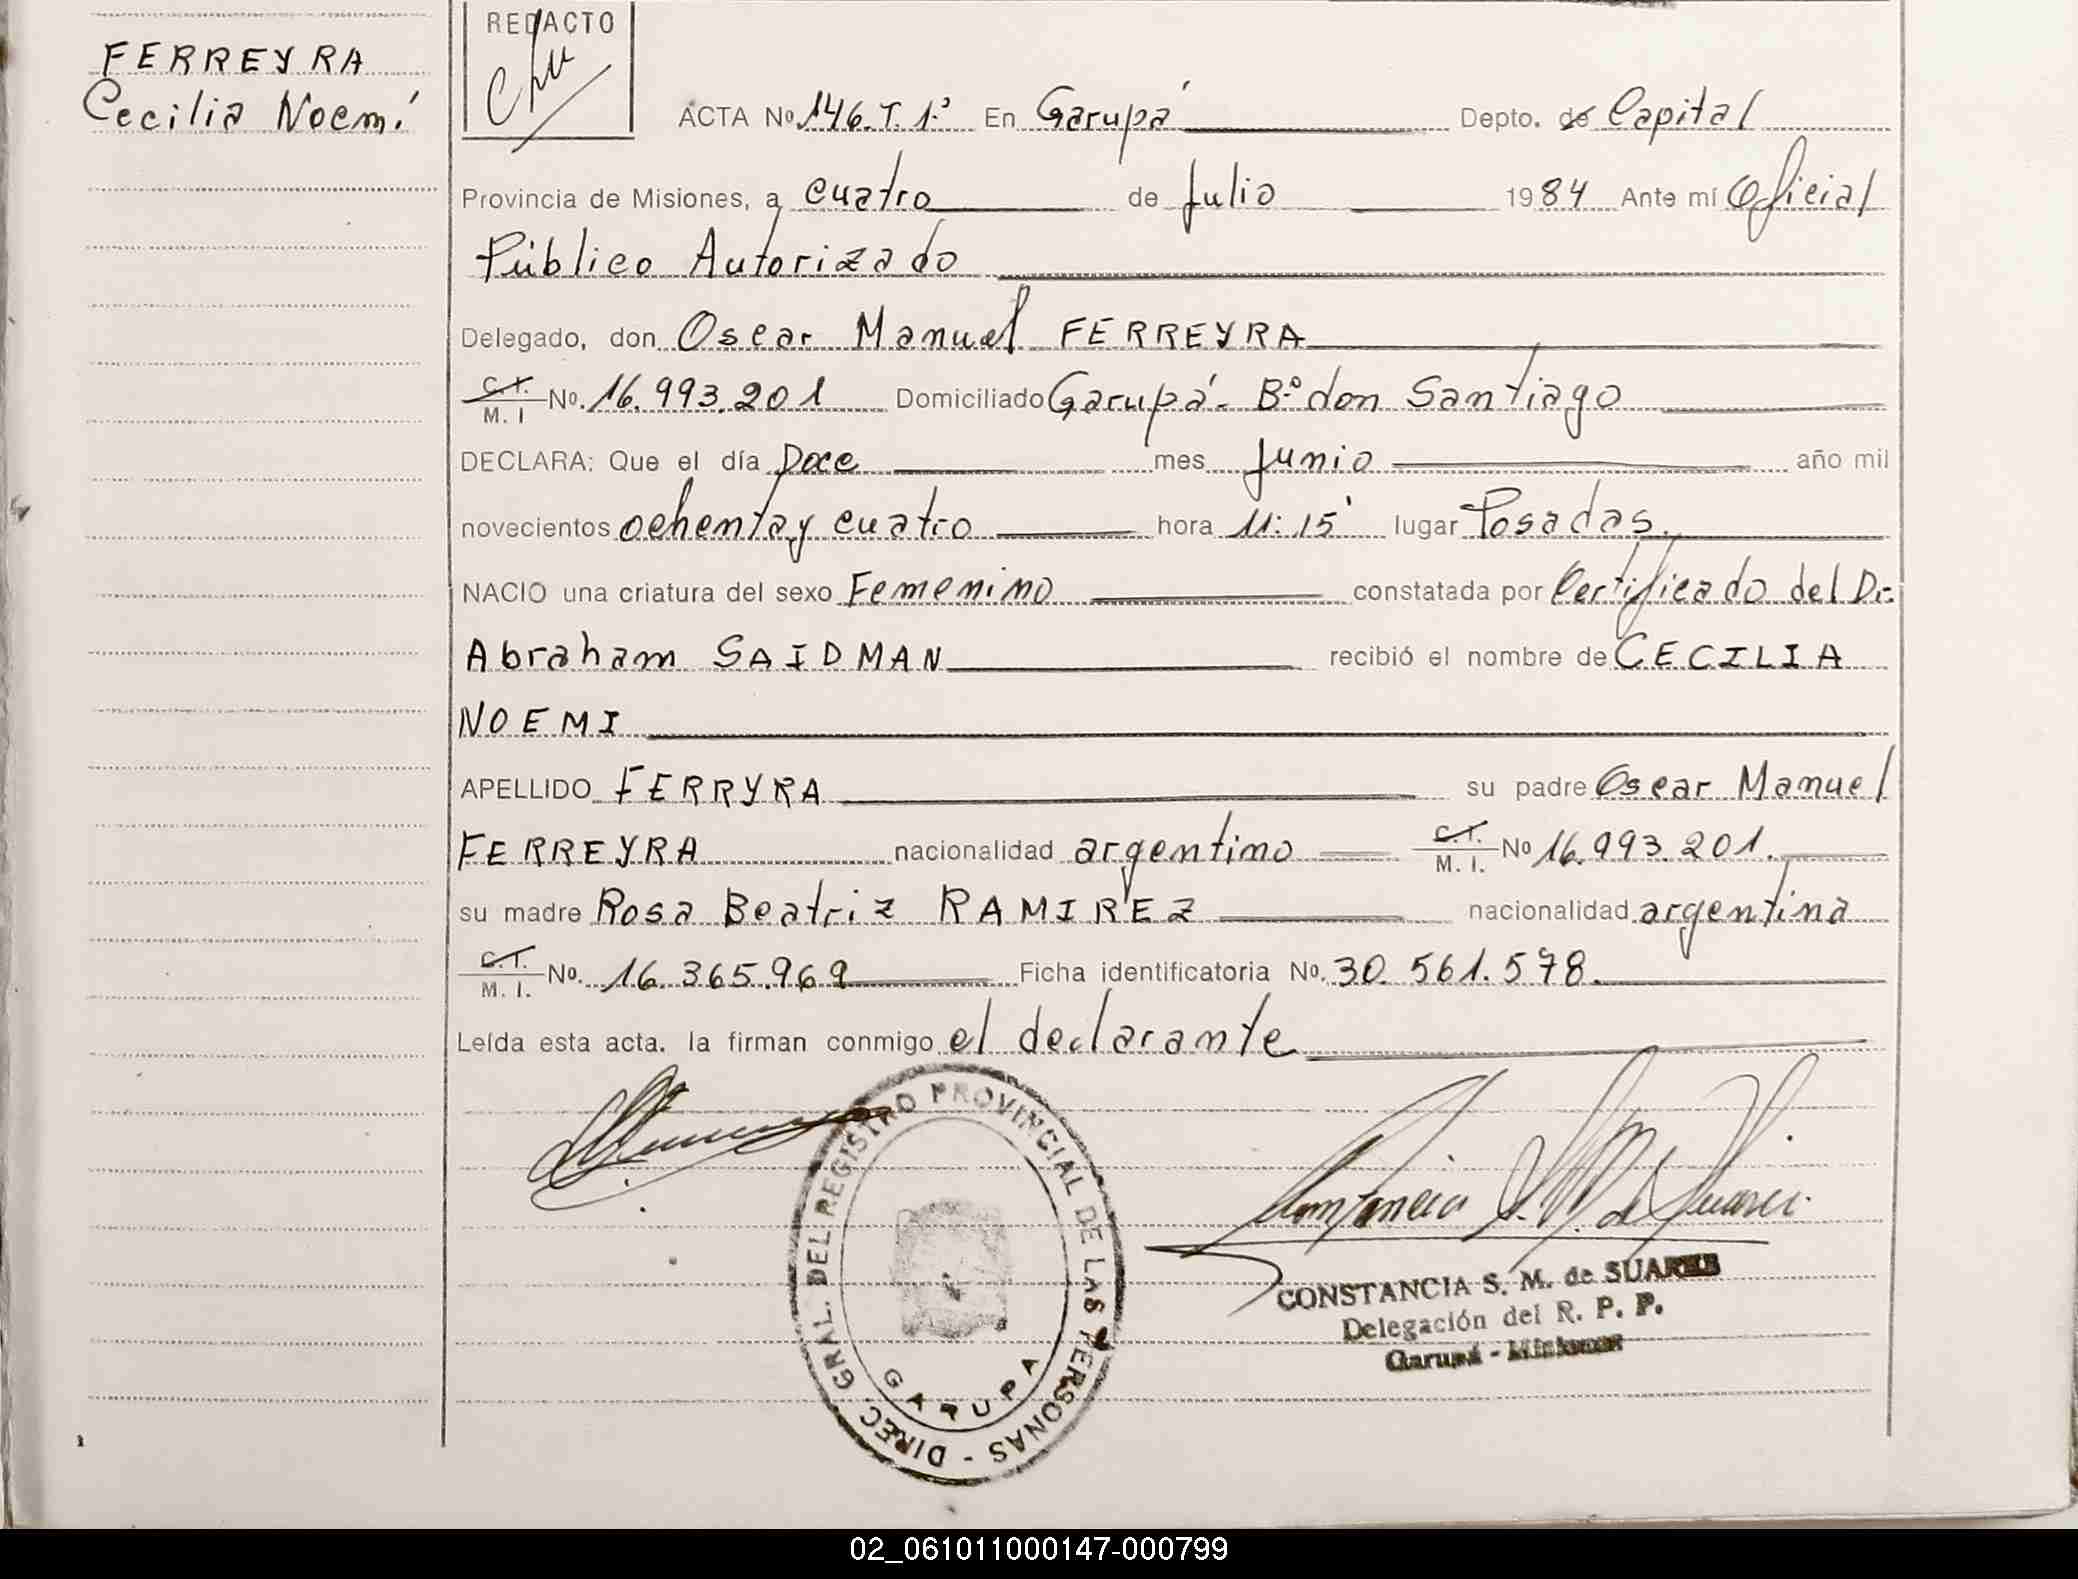 FERREYRA
Cecilia Noemí
REDACTO
ACTA Nº 146.T.1º En Garupá Depto. de Capital
Provincia de Misiones, a cuatro de Julio 1984 Ante mí Oficial
Público Autorizado
Delegado, don Oscar Manuel FERREYRA
C.I. M. I Nº. 16.993.201 Domiciliado Garupá - Bº don Santiago
DECLARA: Que el día Doce mes Junio año mil
novecientos ochenta y cuatro hora 11:15' lugar Posadas.
NACIO una criatura del sexo Femenino constatada por Certificado del Dr.
Abraham SAIDMAN recibió el nombre de CECILIA
NOEMI
APELLIDO FERRYRA su padre Oscar Manuel
FERREYRA nacionalidad argentino C.I. M. I. Nº 16.993.201.
su madre Rosa Beatriz RAMIREZ nacionalidad argentina
C.I. M. I. Nº. 16.365.969 Ficha identificatoria Nº. 30.561.578.
Leída esta acta. la firman conmigo el declarante
DIREC. GRAL. DEL REGISTRO PROVINCIAL DE LAS PERSONAS -
GARUPA
Constancia S. M. de Suarez
CONSTANCIA S. M. de SUAREZ
Delegación del R. P. P.
Garupá - Misiones
02_061011000147-000799